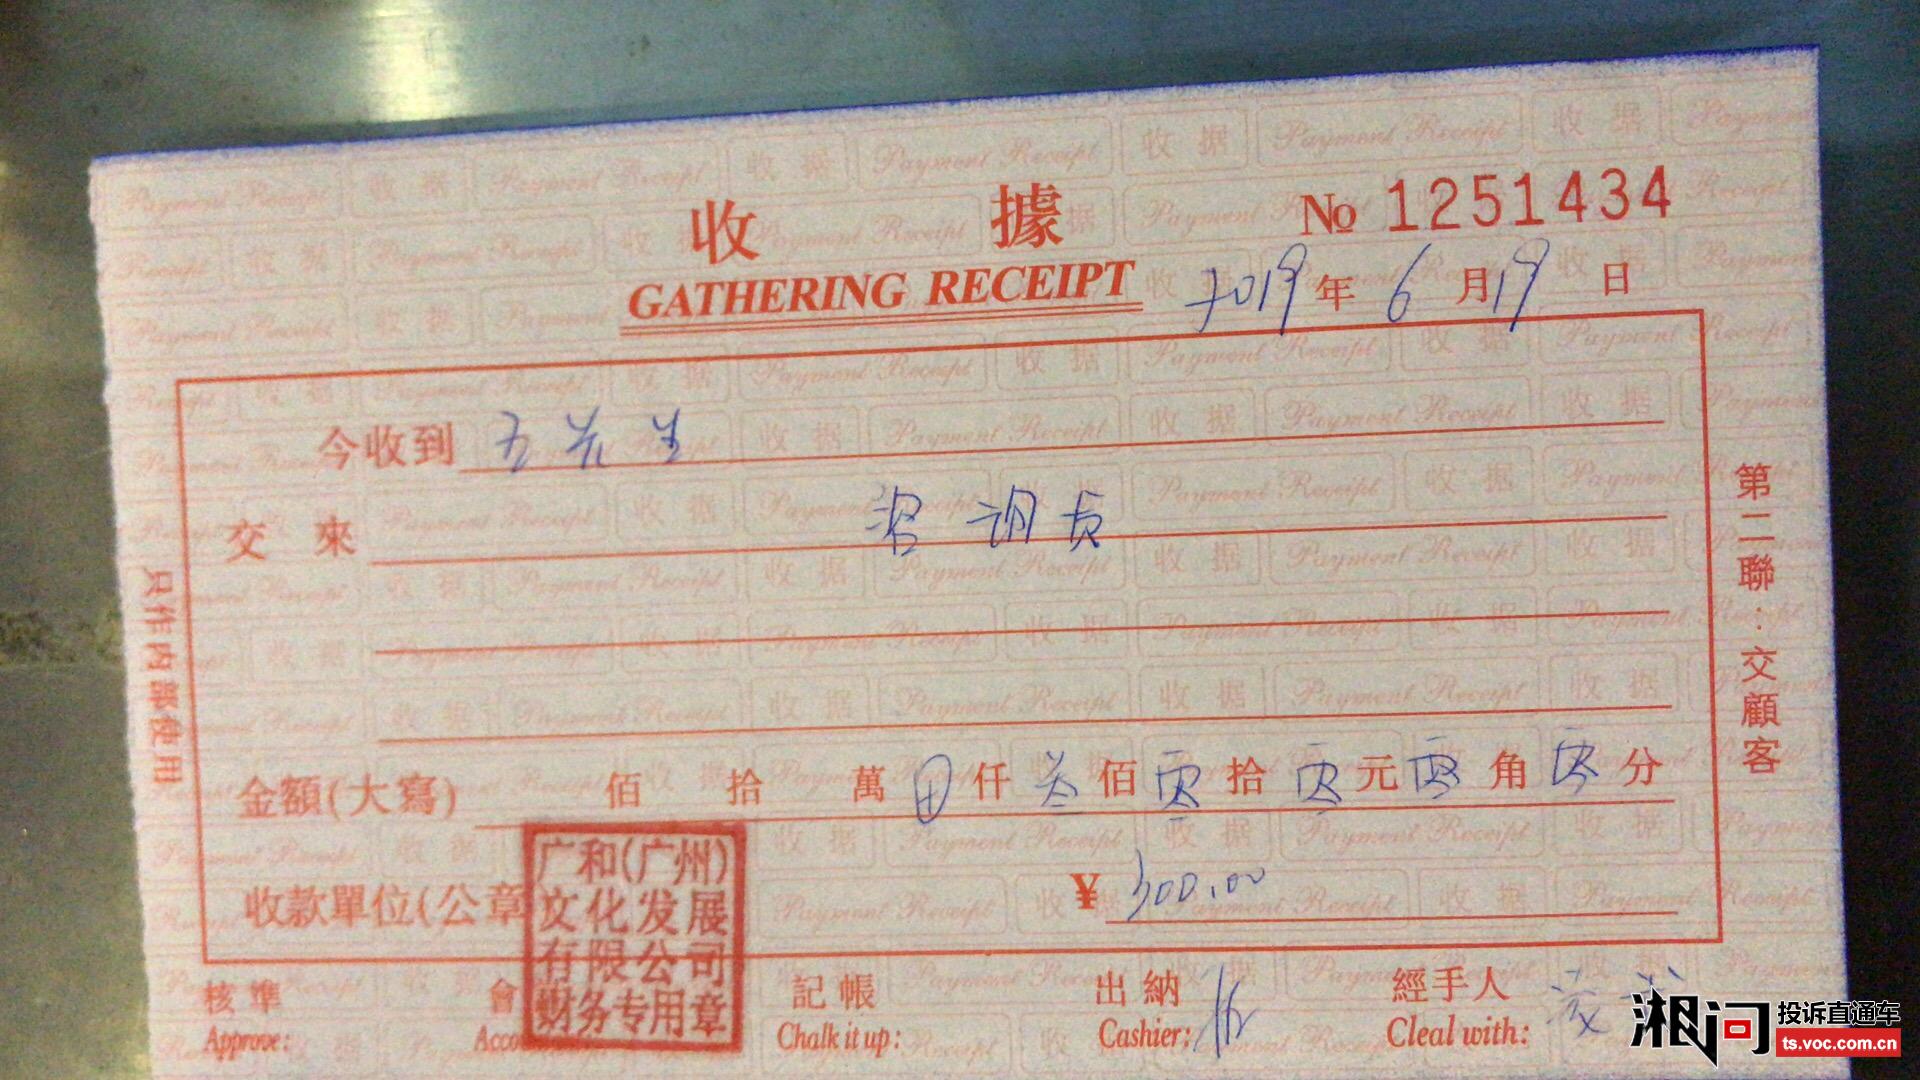 收 據
№ 1251434
GATHERING RECEIPT
2019 年 6 月 19 日
今收到 五先生
交 來
金額(大寫) 佰 拾 萬 仟 叁 佰 零 拾 零 元 零 角 零 分
收款單位(公章
¥ 300.00
广和(广州)
文化发展
有限公司
财务专用章
核 準 會 記 帳 出 納 經手人
Approve: Acco Chalk it up: Cashier: Cleal with:
第二聯：交顧客
只作內部使用
湘问 投诉直通车
ts.voc.com.cn